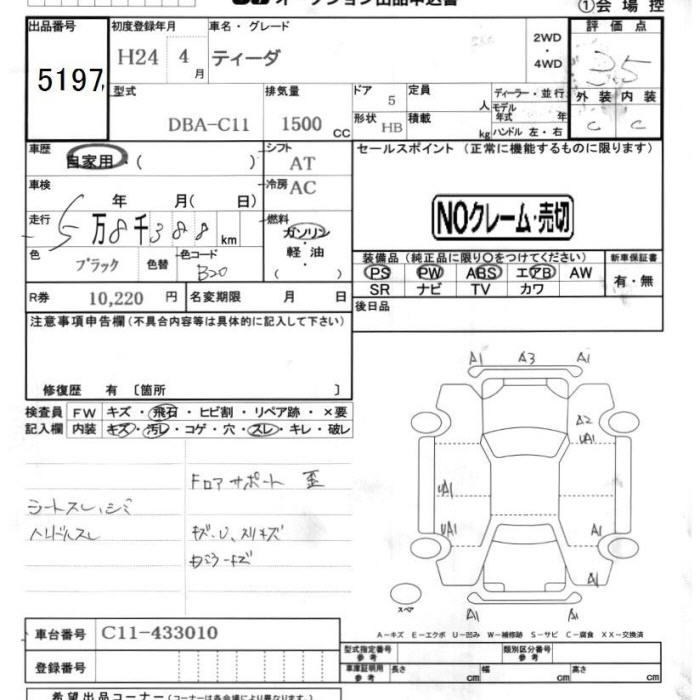 ①会 場 控
出品番号 初度登録年月 車名・グレード 評 価 点
5197 H24 4月 ティーダ 2WD・4WD 3.5
型式 排気量 ドア 定員 ディーラー・並行 外 装 内 装
DBA-C11 1500 cc 5 人 モデル年式 年 C C
形状 HB 積載 kg ハンドル 左・右
車歴 シフト セールスポイント (正常に機能するものに限ります)
自家用・( ) AT
車検 冷房 AC
年 月( 日) NOクレーム・売切
走行 燃料
5万8千388km ガソリン・軽油・( )
色 色替 色コード 装備品 (純正品に限り〇をつけてください) 新車保証書
ブラック B20 PS PW ABS エアB AW 有・無
SR ナビ TV カワ
R券 10,220 円 名変期限 月 日 後日品
注意事項申告欄(不具合内容等は具体的に記入して下さい)
修復歴 有 〔箇所 〕
検査員 FW キズ・飛石・ヒビ割・リペア跡・×要
記入欄 内装 キズ・汚レ・コゲ・穴・スレ・キレ・破レ
A1 A3 A1
A2
UA1
Fロアサポート 歪
UA1
シートスレ、シミ
ハンドルスレ キズ・U、スリキズ
UA1 A1
A1
スペア
A1 A1
車台番号 C11-433010
A-キズ E-エクボ U-凹み W-補修跡 S-サビ C-腐食 XX-交換済
登録番号 型式指定番号 参考 類別区分番号 参考
車庫証明用 参考 長さ cm 幅 cm 高さ cm
希望出品コーナー(コーナーは各会場により異なります。)